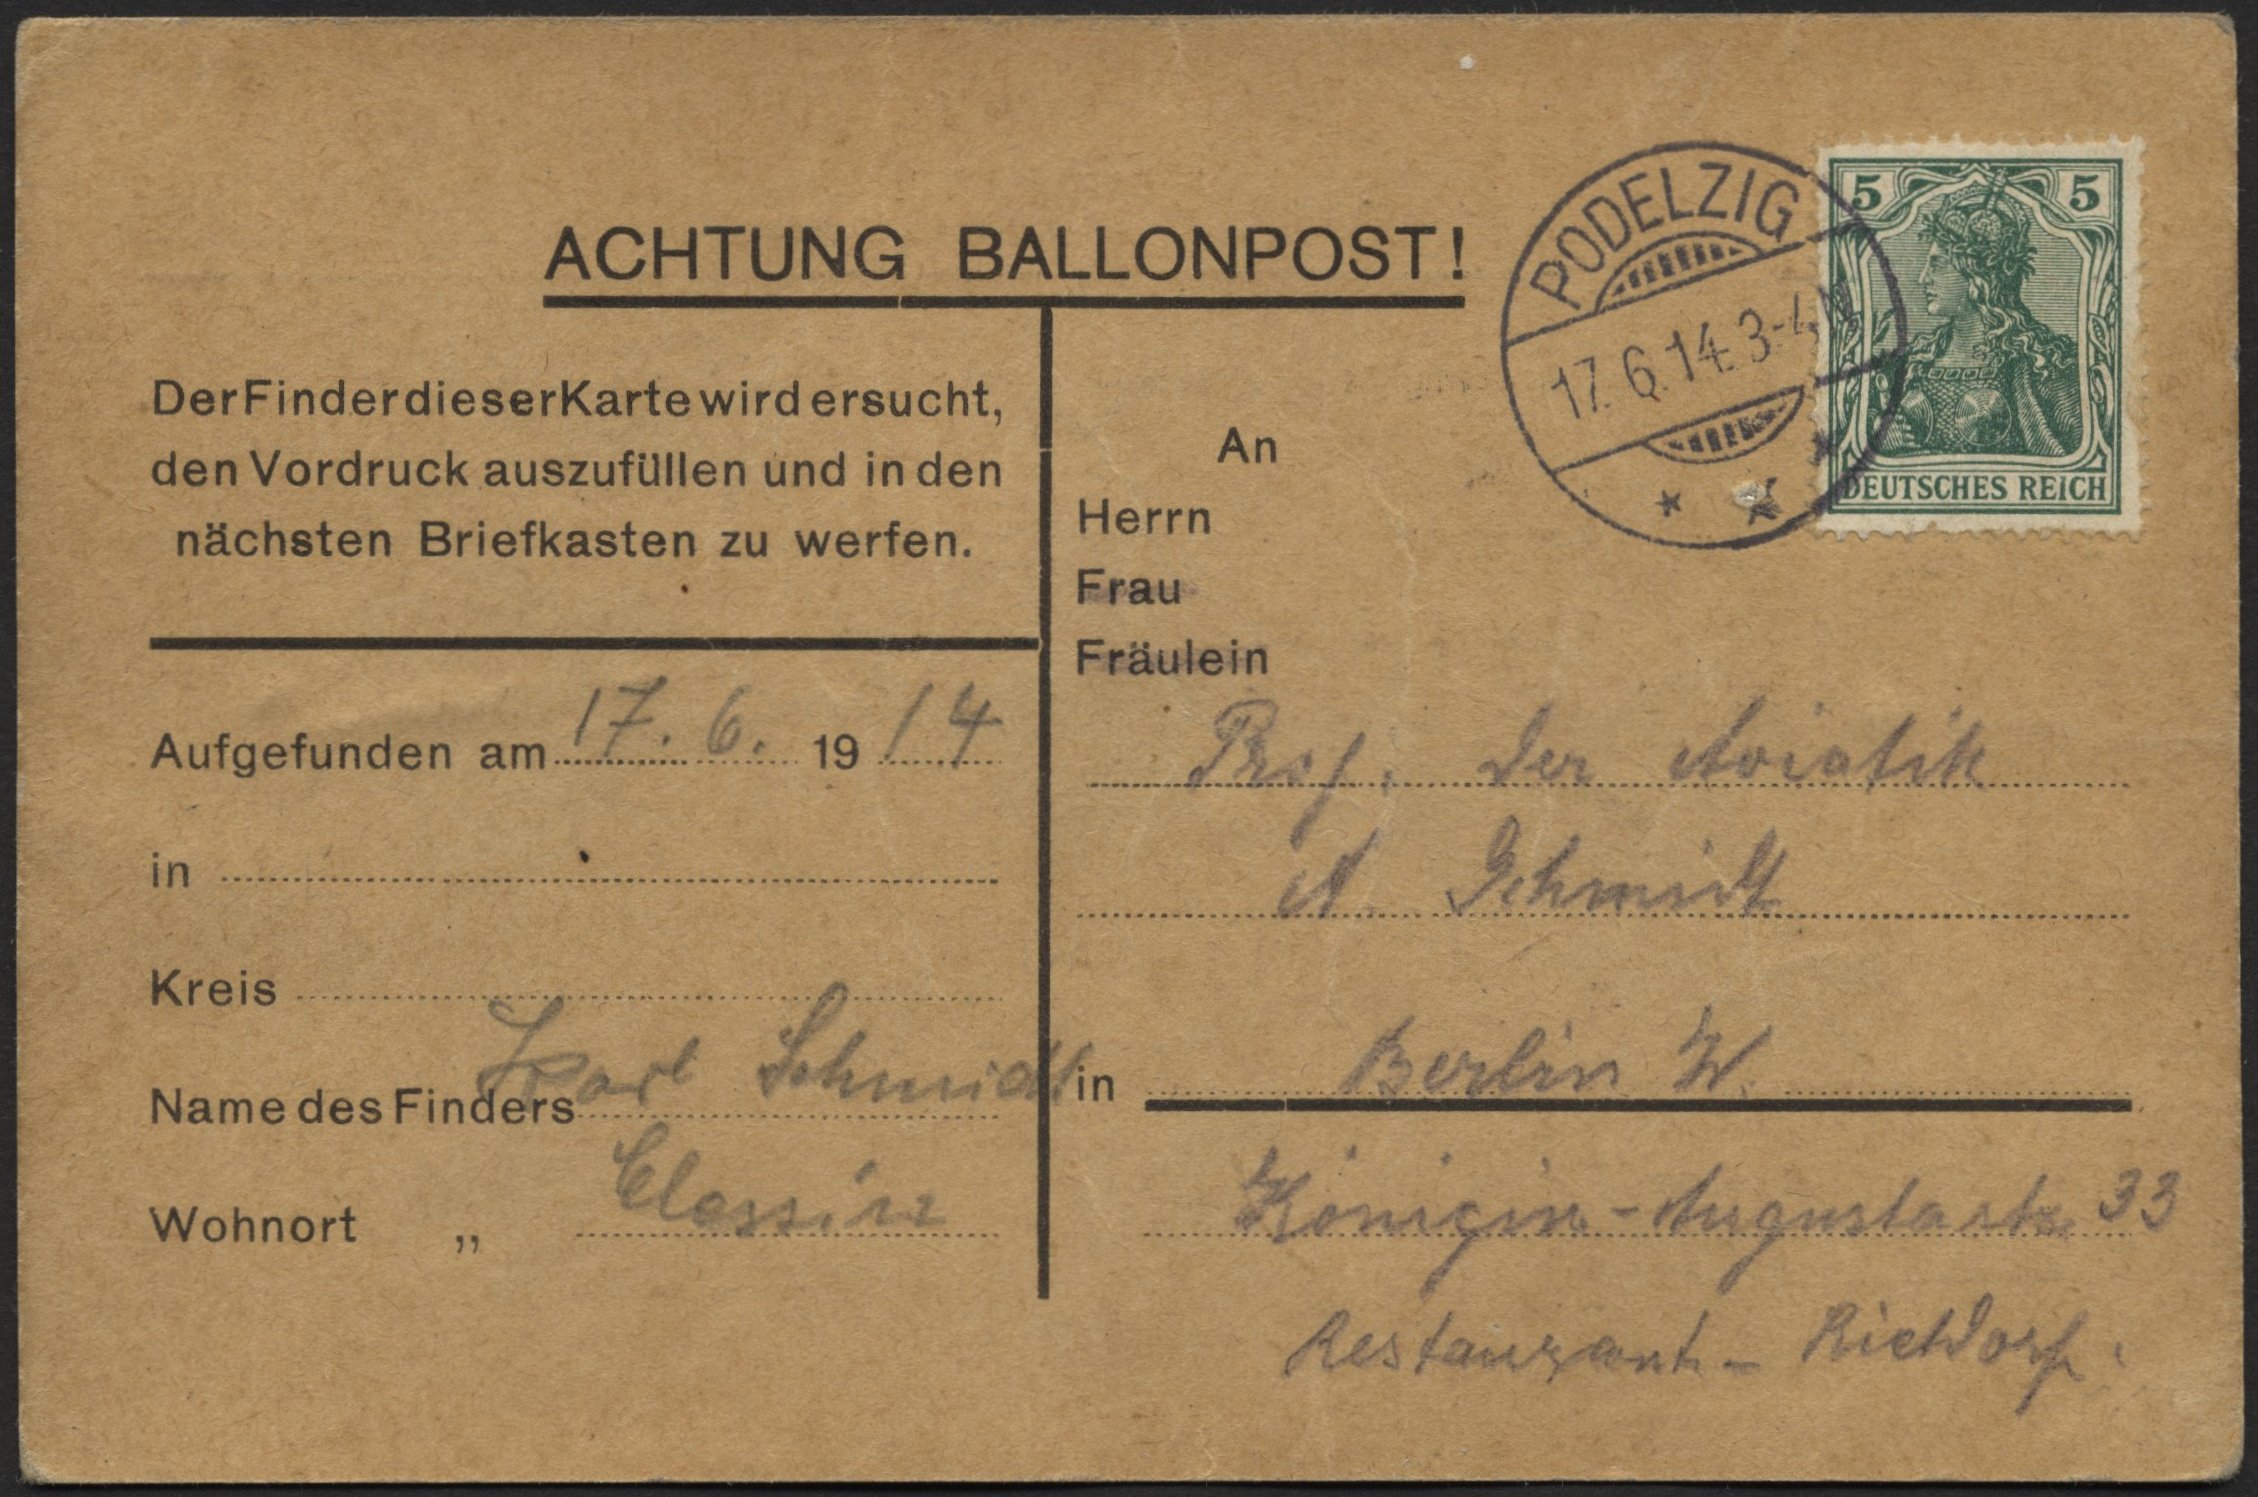 ACHTUNG BALLONPOST!
Der Finder dieser Karte wird ersucht,
den Vordruck auszufüllen und in den
nächsten Briefkasten zu werfen.
Aufgefunden am 17. 6. 1914
in
Kreis
Name des Finders Karl Schmidt
Wohnort „ Clessin
PODELZIG
17.6.14.3-4N
5 5
DEUTSCHES REICH
An
Herrn
Frau
Fräulein
Prof. der Aviatik
A. Schmidt
in Berlin W.
Königin-Augustastr. 33
Restaurant - Rietdorf.